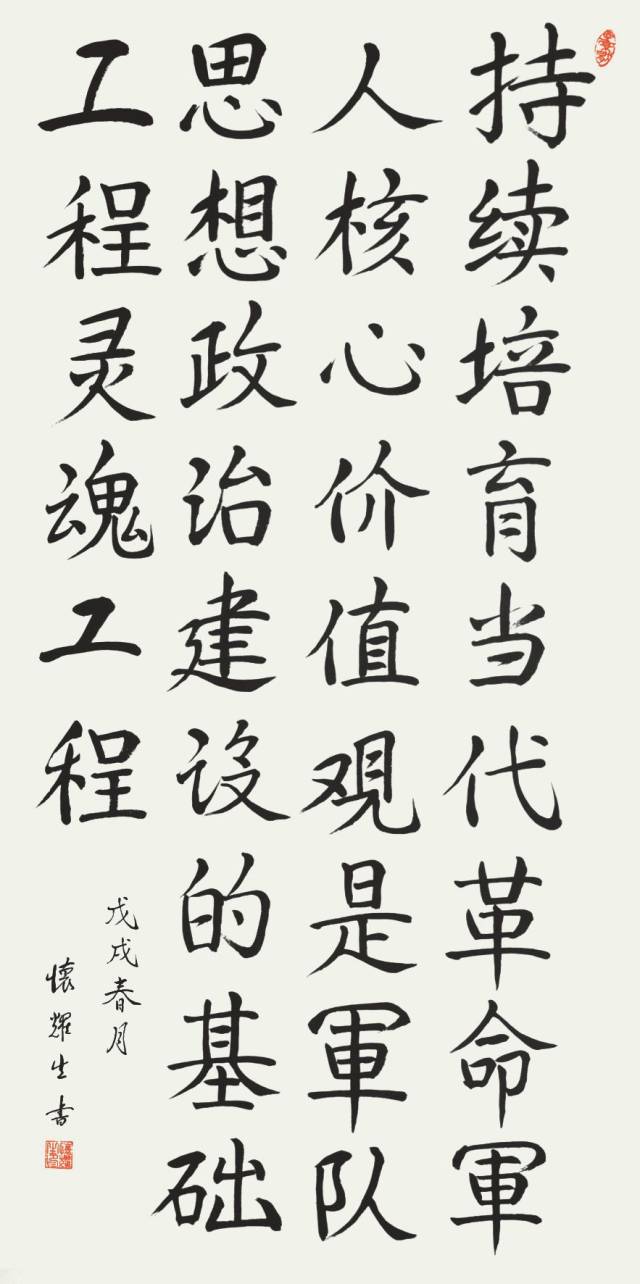 持续培育当代革命軍
人核心价值观是軍队
思想政治建设的基础
工程灵魂工程
戊戌春月
懷耀生书